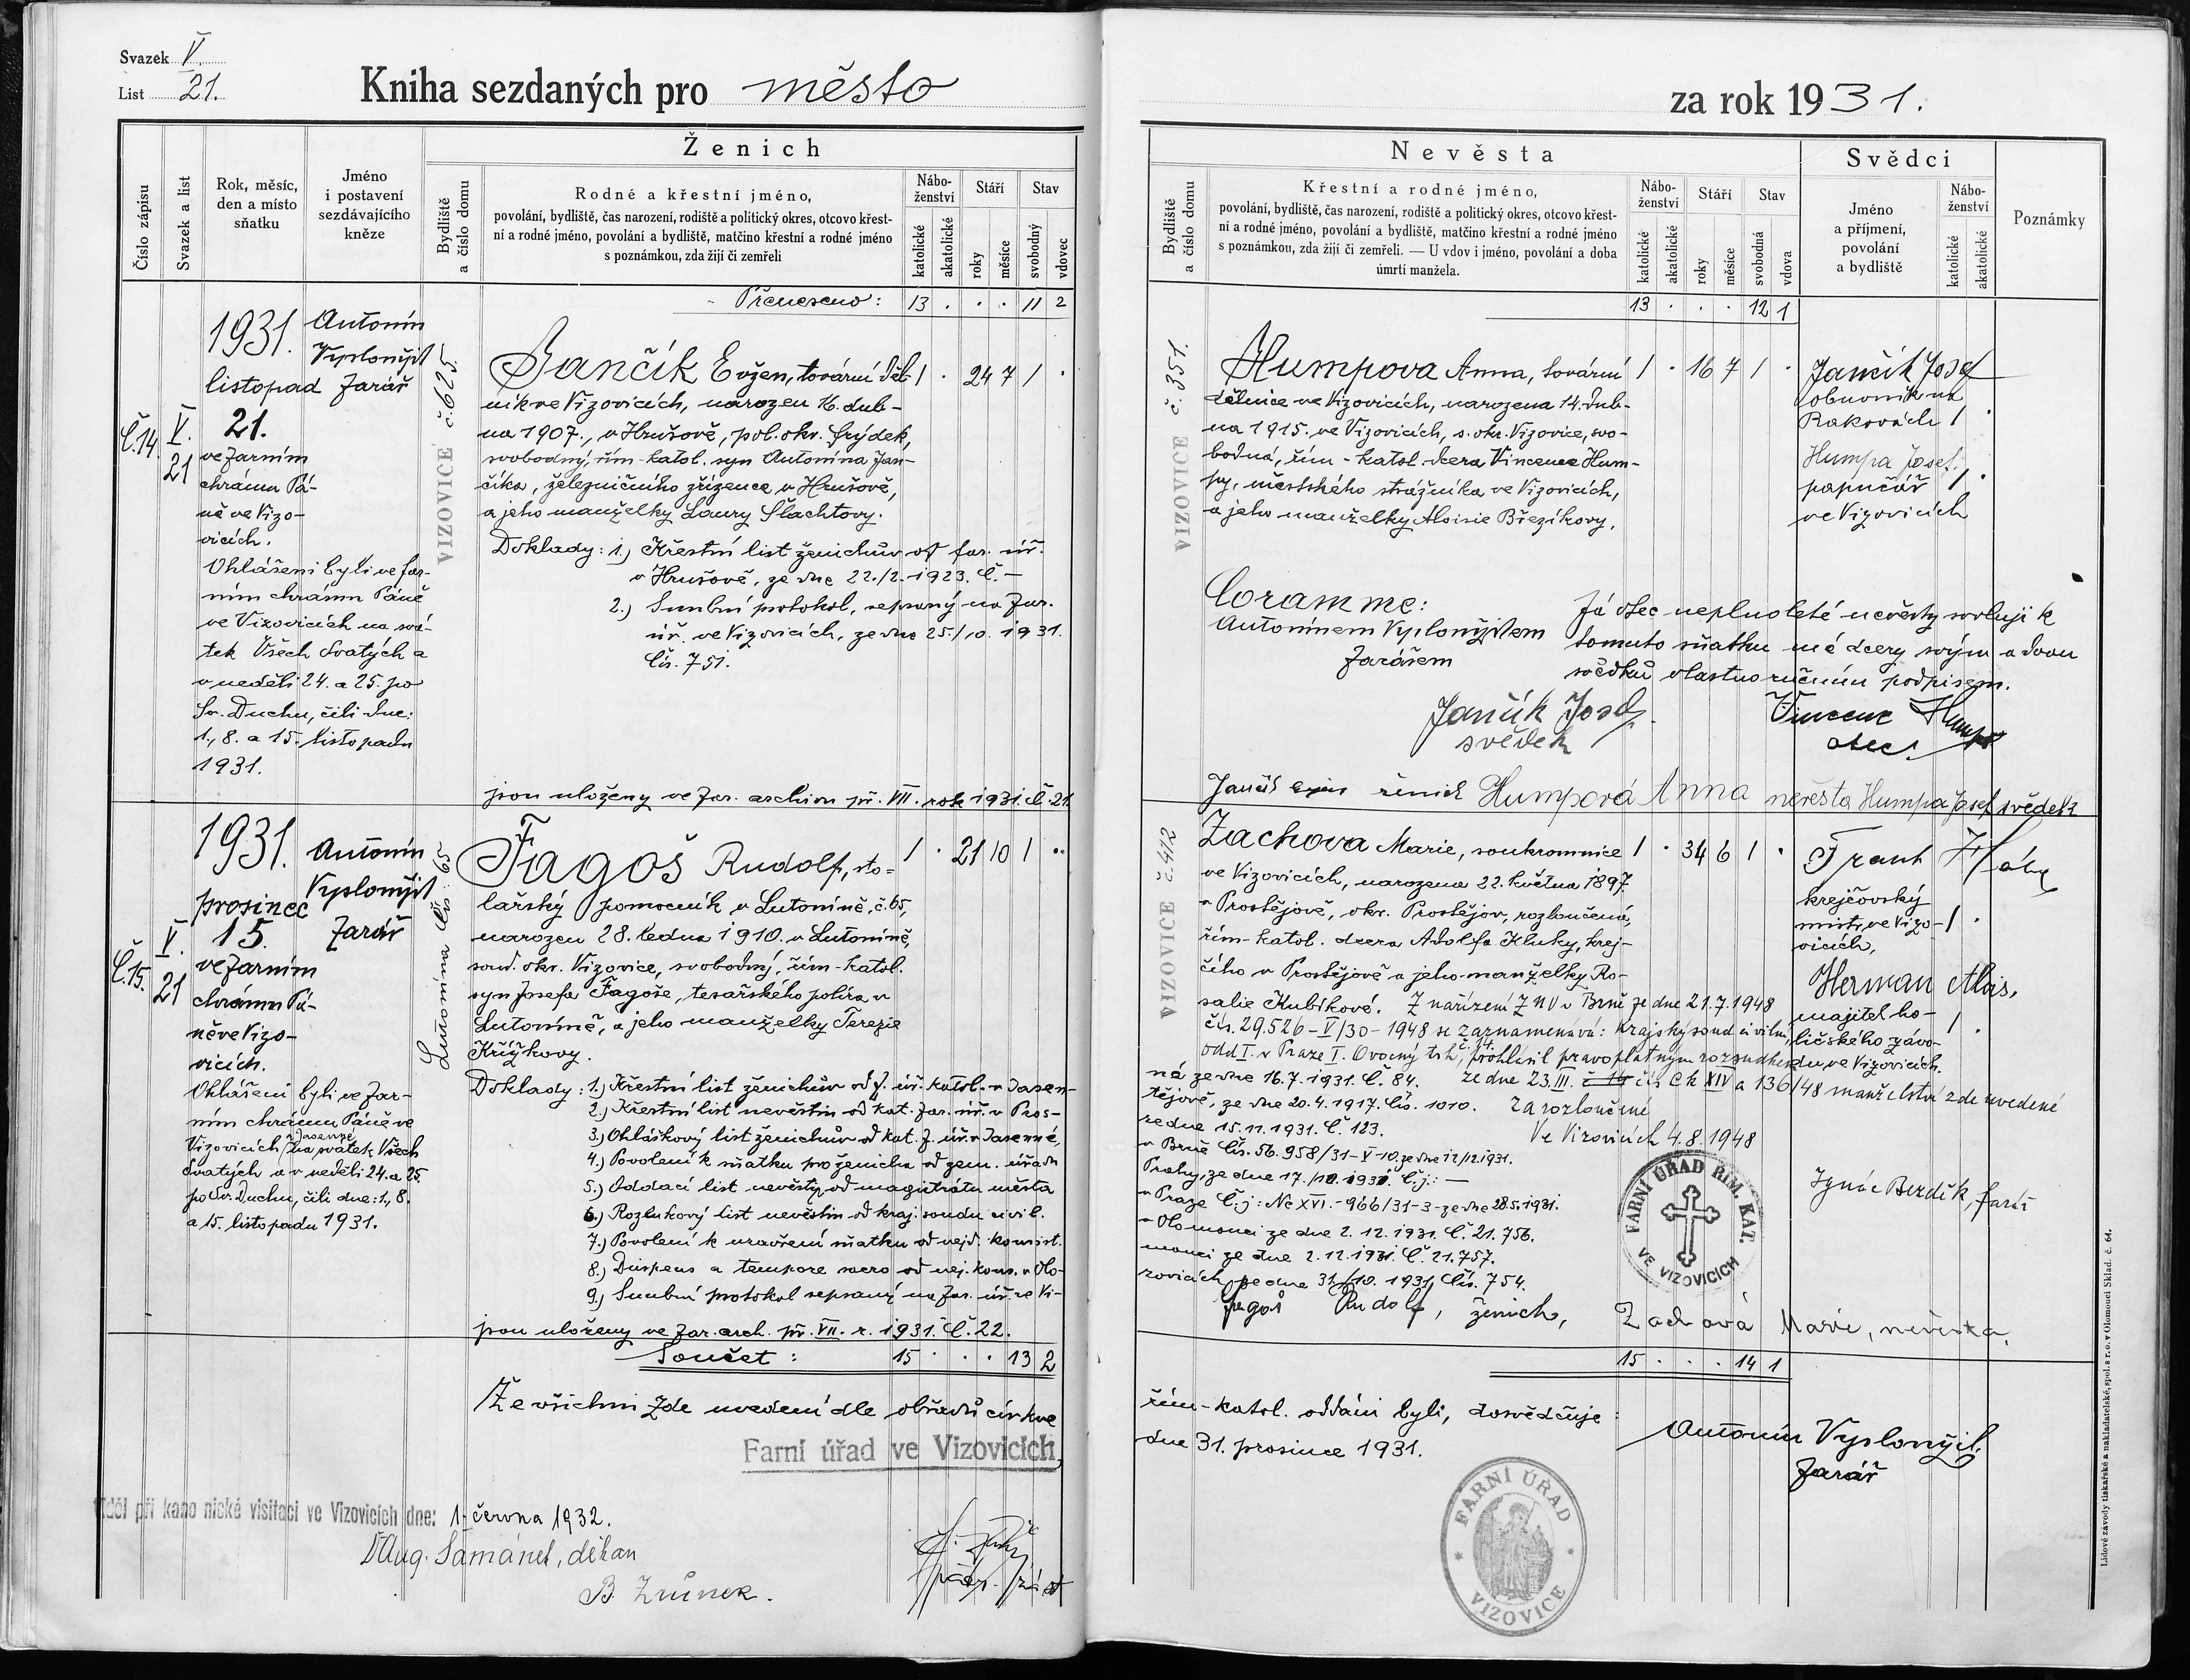 Svazek V.
List 21.
Kniha sezdaných pro město
za rok 1931.
Číslo zápisu
Svazek a list
Rok, měsíc,
den a místo
sňatku
Jméno
i postavení
sezdávajícího
kněze
Ženich
Bydliště
a číslo domu
Rodné a křestní jméno,
povolání, bydliště, čas narození, rodiště a politický okres, otcovo křest-
ní a rodné jméno, povolání a bydliště, matčino křestní a rodné jméno
s poznámkou, zda žijí či zemřeli
Nábo-
ženství
katolické
akatolické
Stáří
roky
měsíce
Stav
svobodný
vdovec
Přeneseno: 13 . . . 11 2
Č.14.
V.
21
1931.
listopad
21.
ve farním
chrámu Pá-
ně ve Vizo-
vicích.
Ohlášeni byli ve far-
ním chrámu Páně
ve Vizovicích na svá-
tek Všech Svatých a
v neděli 24. a 25. po
Sv. Duchu, čili dne:
1., 8. a 15. listopadu
1931.
Antonín
Vyplonžjil
farář
VIZOVICE č. 625.
Jančík Evžen, tovární děl- 1 . 24 7 1 .
ník ve Vizovicích, narozen 16. dub-
na 1907., v Hrušově, pol. okr. Frýdek,
svobodný, řím-katol. syn Antonína Jan-
číka, železničního zřízence v Hrušově,
a jeho manželky Laury Šlachtovy.
Doklady: 1.) Křestní list ženichův od far. úř.
v Hrušově, ze dne 22./2. 1923. Č. —
2.) Snubní protokol, sepsaný na far.
úř. ve Vizovicích, ze dne 25./10. 1931.
Čís. 751.
jsou uloženy ve far. archivu př. VII. rok 1931. Č. 21.
Č.15.
V.
21
1931.
prosinec
15.
ve farním
chrámu Pá-
ně ve Vizo-
vicích.
Ohlášeni byli ve far-
ním chrámu Páně ve
Vizovicích v Jasenné na svátek Všech
Svatých a v neděli 24. a 25.
po Sv. Duchu, čili dne: 1., 8.
a 15. listopadu 1931.
Antonín
Vyplonžjil
farář
Lutonina čís. 65
Fagoš Rudolf, sto- 1 . 21 10 1 ..
lařský pomocník v Lutonině, č. 65,
narozen 28. ledna 1910. v Lutonině,
soud. okr. Vizovice, svobodný, řím-katol.
syn Josefa Fagoše, tesařského políra v
Lutonině, a jeho manželky Terezie
Křížkovy.
Doklady: 1.) Křestní list ženichův od f. úř. katol. v Jasen-
2.) Křestní list nevěstin od kat. far. úř. v Pros-
3.) Ohláškový list ženichův od kat. f. úř. v Jasenné,
4.) Povolení k sňatku pro ženicha od zem. úřadu
5.) Oddací list nevěsty od magistrátu města
6.) Rozlukový list nevěstin od kraj. soudu civil.
7.) Povolení k uzavření sňatku od nejd. konsist.
8.) Dispens a tempore sacro od nej. kons. v Olo-
9.) Snubní protokol sepsaný na far. úř. ve Vi-
jsou uloženy ve far. arch. př. VII. r. 1931. Č. 22.
Součet: 15 . . . 13 2
Že všichni zde uvedení dle obřadů církve
Farní úřad ve Vizovicích
Viděl při kanonické visitaci ve Vizovicích dne: 1. června 1932.
Aug. Šamánek, děkan
B. Zrůnek.
Nevěsta
Bydliště
a číslo domu
Křestní a rodné jméno,
povolání, bydliště, čas narození, rodiště a politický okres, otcovo křest-
ní a rodné jméno, povolání a bydliště, matčino křestní a rodné jméno
s poznámkou, zda žijí či zemřeli. — U vdov i jméno, povolání a doba
úmrtí manžela.
Nábo-
ženství
katolické
akatolické
Stáří
roky
měsíce
Stav
svobodná
vdova
Svědci
Jméno
a příjmení,
povolání
a bydliště
Nábo-
ženství
katolické
akatolické
Poznámky
13 . . . 12 1
VIZOVICE č. 351.
Humpova Anna, tovární 1 . 16 7 1 .
dělnice ve Vizovicích, narozena 14. dub-
na 1915. ve Vizovicích, s. okr. Vizovice, svo-
bodná, řím-katol. dcera Vincence Hum-
py, městského strážníka ve Vizovicích,
a jeho manželky Aloisie Březíkovy.
Jančík Josef
obuvník na
Rakovách 1 .
Humpa Josef,
papučář 1 .
ve Vizovicích
Coram me:
Antonínem Vyplonžjilem
farářem
Já otec neplnoleté nevěsty svoluji k
tomuto sňatku mé dcery svým a dvou
svědků vlastnoručním podpisem.
Jančík Josef
svědek
Vincenc Humpa
otec
Jančík Evžen ženich Humpová Anna nevěsta Humpa Josef svědek
VIZOVICE č. 412
Zachova Marie, soukromnice 1 . 34 6 1 .
ve Vizovicích, narozena 22. května 1897.
v Prostějově, okr. Prostějov, rozloučená,
řím-katol. dcera Adolfa Kluky, krej-
čího v Prostějově a jeho manželky Ro-
salie Kubíkové. Z nařízení ZNV v Brně ze dne 21.7.1948
čís. 29.526-V/30-1948 se zaznamenává: Krajský soud civilní,
odd I. v Praze I. Ovocný trh, č. 14. prohlásil pravoplatným rozsudkem
ze dne 23.III. čís Ck XIV a 136/48 manželství zde uvedené
za rozloučené
Ve Vizovicích 4.8.1948
Ignác Bezděk, farář
Frant
krejčovský
mistr, ve Vizo- 1 .
vicích,
Herman Alois,
majitel ho-
ličského závo- 1 .
du ve Vizovicích.
né ze dne 16.7.1931. Č. 84.
tějově, ze dne 20.4.1917. Čís. 1010.
ze dne 15.11.1931. Č. 123.
v Brně Čís. 56.958/31-V-10. ze dne 12/12.1931.
Prahy, ze dne 17./10. 1931. Č.j.: —
v Praze Č.j: Nc XVI.-966/31-3-ze dne 28.5.1931.
v Olomouci ze dne 2.12.1931. Č. 21.756.
mouci ze dne 2.12.1931. Č. 21.757.
zovicích, ze dne 31./10. 1931. Čís. 754.
FARNÍ ÚŘAD ŘÍM. KAT.
VE VIZOVICÍCH
Fagoš Rudolf, ženich, Zachová Marie, nevěsta.
15 . . . 14 1
řím-katol. oddáni byli, dosvědčuje:
dne 31. prosince 1931.
Antonín Vyplonžjil.
farář
FARNÍ ÚŘAD
VIZOVICE
Lidové závody tiskařské a nakladatelské, spol. s r. o. v Olomouci Sklad. č. 64.